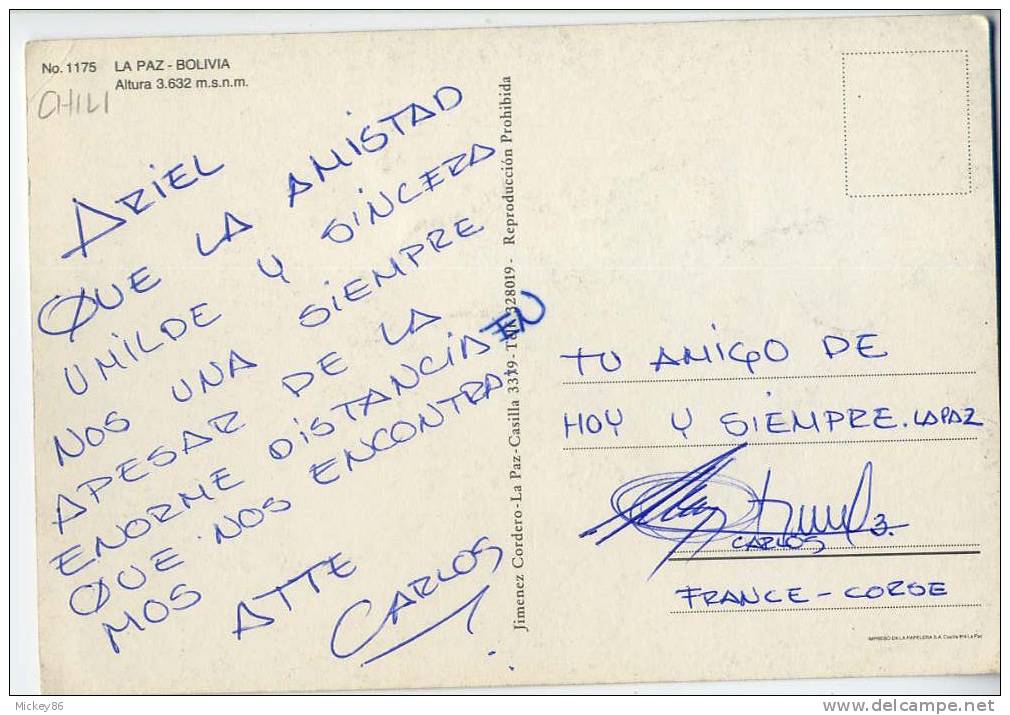 No. 1175 LA PAZ - BOLIVIA
Altura 3.632 m.s.n.m.
CHILI
ARIEL
QUE LA AMISTAD
UMILDE Y SINCERA
NOS UNA SIEMPRE
APESAR DE LA
ENORME DISTANCIA EN
QUE NOS ENCONTRA
MOS
ATTE
CARLOS
Jimenez Cordero - La Paz - Casilla 3319 - Telf. 328019 - Reproducción Prohibida
TU AMIGO DE
HOY Y SIEMPRE. LA PAZ
CARLOS
FRANCE - CORSE
IMPRESO EN LA PAPELERA S.A. Casilla La Paz
Mickey86
delcampe.net